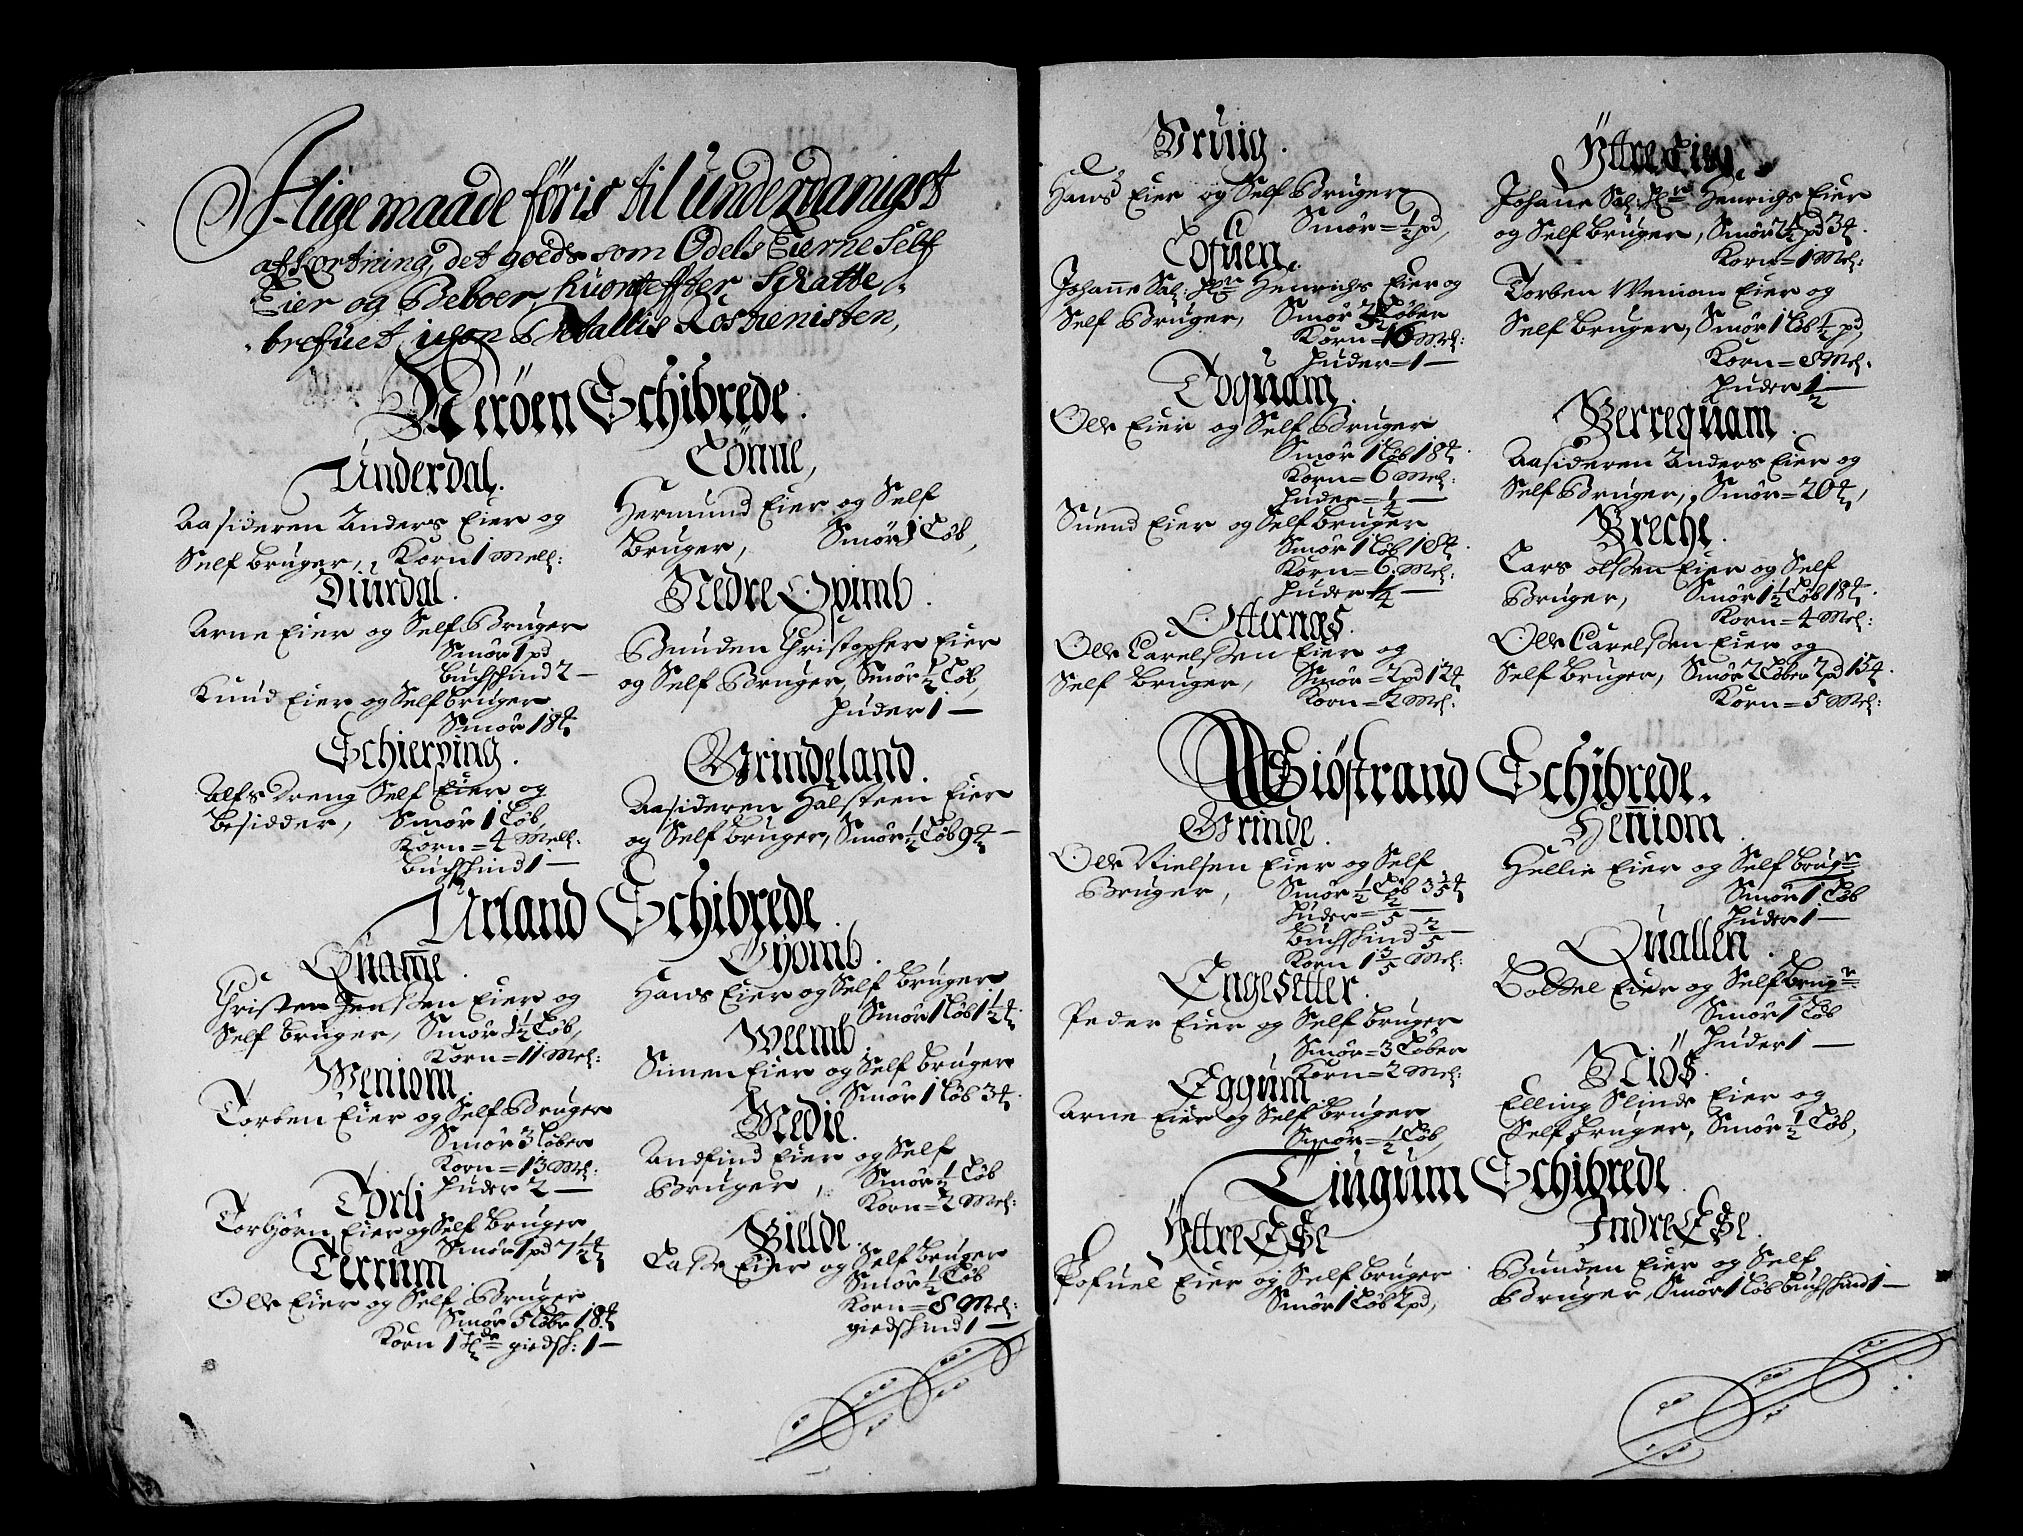 I lige maade føris til underdanigst
afkortning, det goeds som Odels Eierne Self
Eier og Beboer, huorefter Skatte
brefuet, ujen Betallis Rostienisten,
Nerøen Schibrede.
Underdal.
Aasideren Anders Eier og
Self bruger, Korn 1 Mell:
Diurdal.
Arne Eier og Self Bruger
Smør 1 pd
Buchskind 2 —
Knud Eier og Self bruger
Smør 18 ℔
Schierping.
Alfs dreng Self Eier og
besidder, Smør 1 Løb,
Korn = 4 Mell:
Buchskind 1 —
Lønne,
Hermund Eier og Self
Bruger, Smør 1 Løb,
Nedre Opimb.
Bunden Christopher Eier
og Self Bruger, Smør ½ Løb,
Huder 1 —
Grindeland.
Aasideren Halsteen Eier
og Self bruger, Smør ½ Løb 9 ℔ —
Urland Schibrede.
Quam̄e.
Christen Jenssen Eier og
Self bruger, Smør 1½ Løb,
Korn = 11 Mel:
Weniom.
Torben Eier og Self Bruger
Smør 3 Løber
Korn = 13 Mel:
Huder 2 —
Torli
Torbjørn Eier og Self bruger
Smør 1 pd 7½ ℔
Terrum
Olle Eier og Self Bruger
Smør 5 Løbr 18 ℔
Korn 1 giedsk: 1 —
Gyomb.
Hans Eier og Self bruger
Smør 1 Løb 1½ ℔
Weemb
Simen Eier og Self bruger
Smør 1 Løb 3 ℔.
Medie.
Andfind Eier og Self
Bruger, Smør ½ Løb
Korn = 2 Mel:
Gielde.
Lasse Eier og Self bruger
Smør ½ Løb
Korn = 8 Mel:
giedskind 1 —
Bruig.
Hans Eier og Self Bruger
Smør = ½ pd,
Lofuen.
Johanne Sal: Hr Henrichs Eier og
Self Bruger, Smør Løber
Korn = 16 Mel:
Huder = 1 —
Toquam.
Olle Eier og Self Bruger
Smør 1 Løb 18 ℔.
Korn = 6 Mel:
Huder = ¼ —
Suend Eier og Self bruger
Smør 1 Løb 18 ℔.
Korn = 6. Mel:
Huder ¼ —
Otternæs.
Olle Carelssen Eier og
Self bruger, Smør = 2 pd 12 ℔
Korn = 2 Mel:
Yttre
Johanne Sal: Hr Henrichs Eier
og Self bruger, Smør 2½ pd 3 ℔.
Korn = 1 Mel:
Torben Weniom Eier og
Self bruger, Smør 1 Løb ½ pd,
Korn = 8 Mel:
Huder ½ —
Berrequam.
Aasideren Anders Eier og
Self Bruger, Smør = 20 ℔,
Breche.
Lars olssen Eier og Self
Bruger, Smør 1½ Løb 18 ℔.
Korn = 4 Mel:
Olle Carelssen Eier og
Self bruger, Smør 2 Løber 2 pd 15 ℔.
Korn = 5 Mel:
Siøstrand Schibrede.
Grinde.
Olle Nielsen Eier og Self
Bruger, Smør ½ Løb 3⅗ ℔
Huder = ⅖ —
Buchskind ⅖ —
Korn 1⅗ Mel:
Engesetter.
Peder Eier og Self bruger
Smør = 3 Løber
Korn = 2 Mel:
Eggum
Arne Eier og Self bruger
Smør = ½ Løb,
Hen̄iom.
Hellie Eier og Self brugr
Smør 1 Løb
Huder 1 —
Quallen.
Eier og Self brugr
Smør 1 Løb
Huder 1 —
Niøs.
Elling Slinde Eier og
Self bruger, Smør ½ Løb,
Tingum Schibrede
Yttre Esse
Pofuel Eier og Self bruger
Smør 1 Løb 2 pd,
Indre Esse.
Bunden Eier og Self
Bruger, Smør 1 Løb Buchskind 1 —